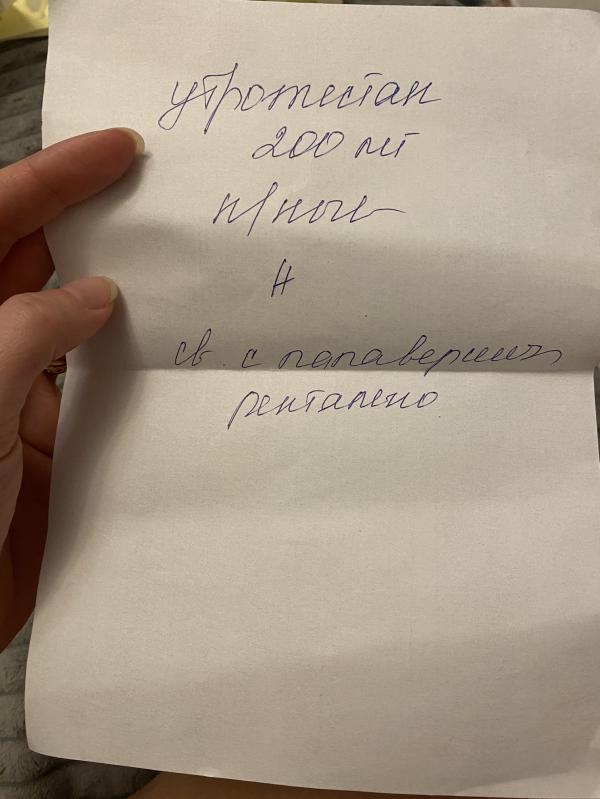 утрожестан
200 мг
н/ночь
+
св. с папаверином
ректально